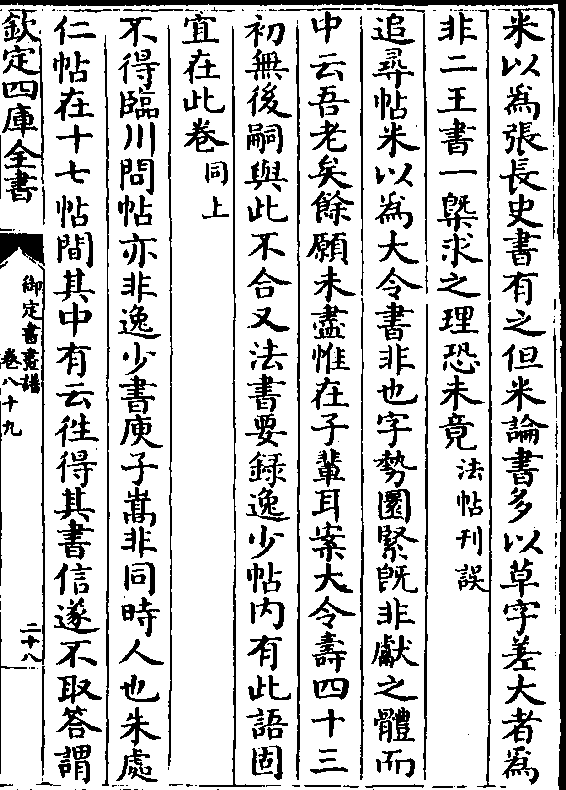 米以為張長史書有之但米論書多以草字差大者為
非二王書一槩求之理恐未竟法帖刋誤
追尋帖米以為大令書非也字勢圎緊既非獻之體而
中云吾老矣餘願未盡惟在子輩耳案大令壽四十三
初無後嗣與此不合又法書要錄逸少帖内有此語固
宜在此卷同上
不得臨川問帖亦非逸少書庾子嵩非同時人也朱處
仁帖在十七帖間其中有云徃得其書信遂不取答謂
欽定四庫全書
御定書畫譜
卷八十九
二十八